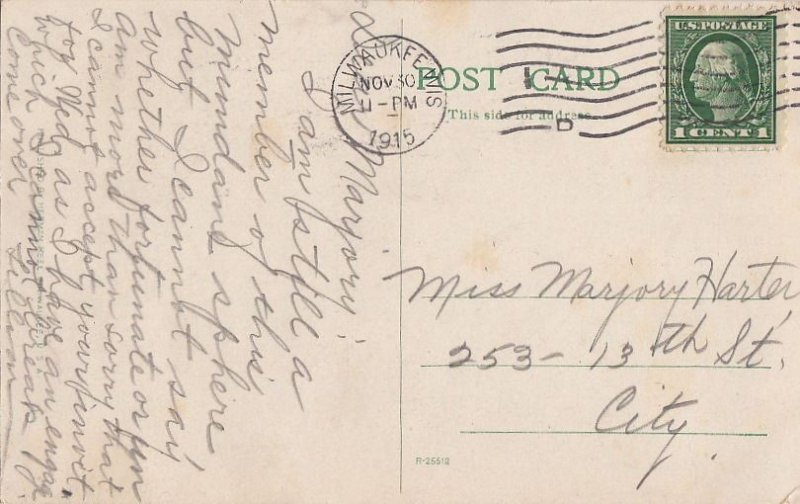 Marjory:
I am still a
member of this
mundane sphere
but I cannot say
whether fortunate or un
am more than sorry that
I cannot accept your invit.
for Wed. as I have an engag.
which I cannot break
Come over
Lillian
MILWAUKEE WIS
NOV 30
11-PM
1915
POST CARD
This side for address
D
U.S. POSTAGE
1 CENT 1
Miss Marjory Harter
253- 13th St.
City.
R-25512